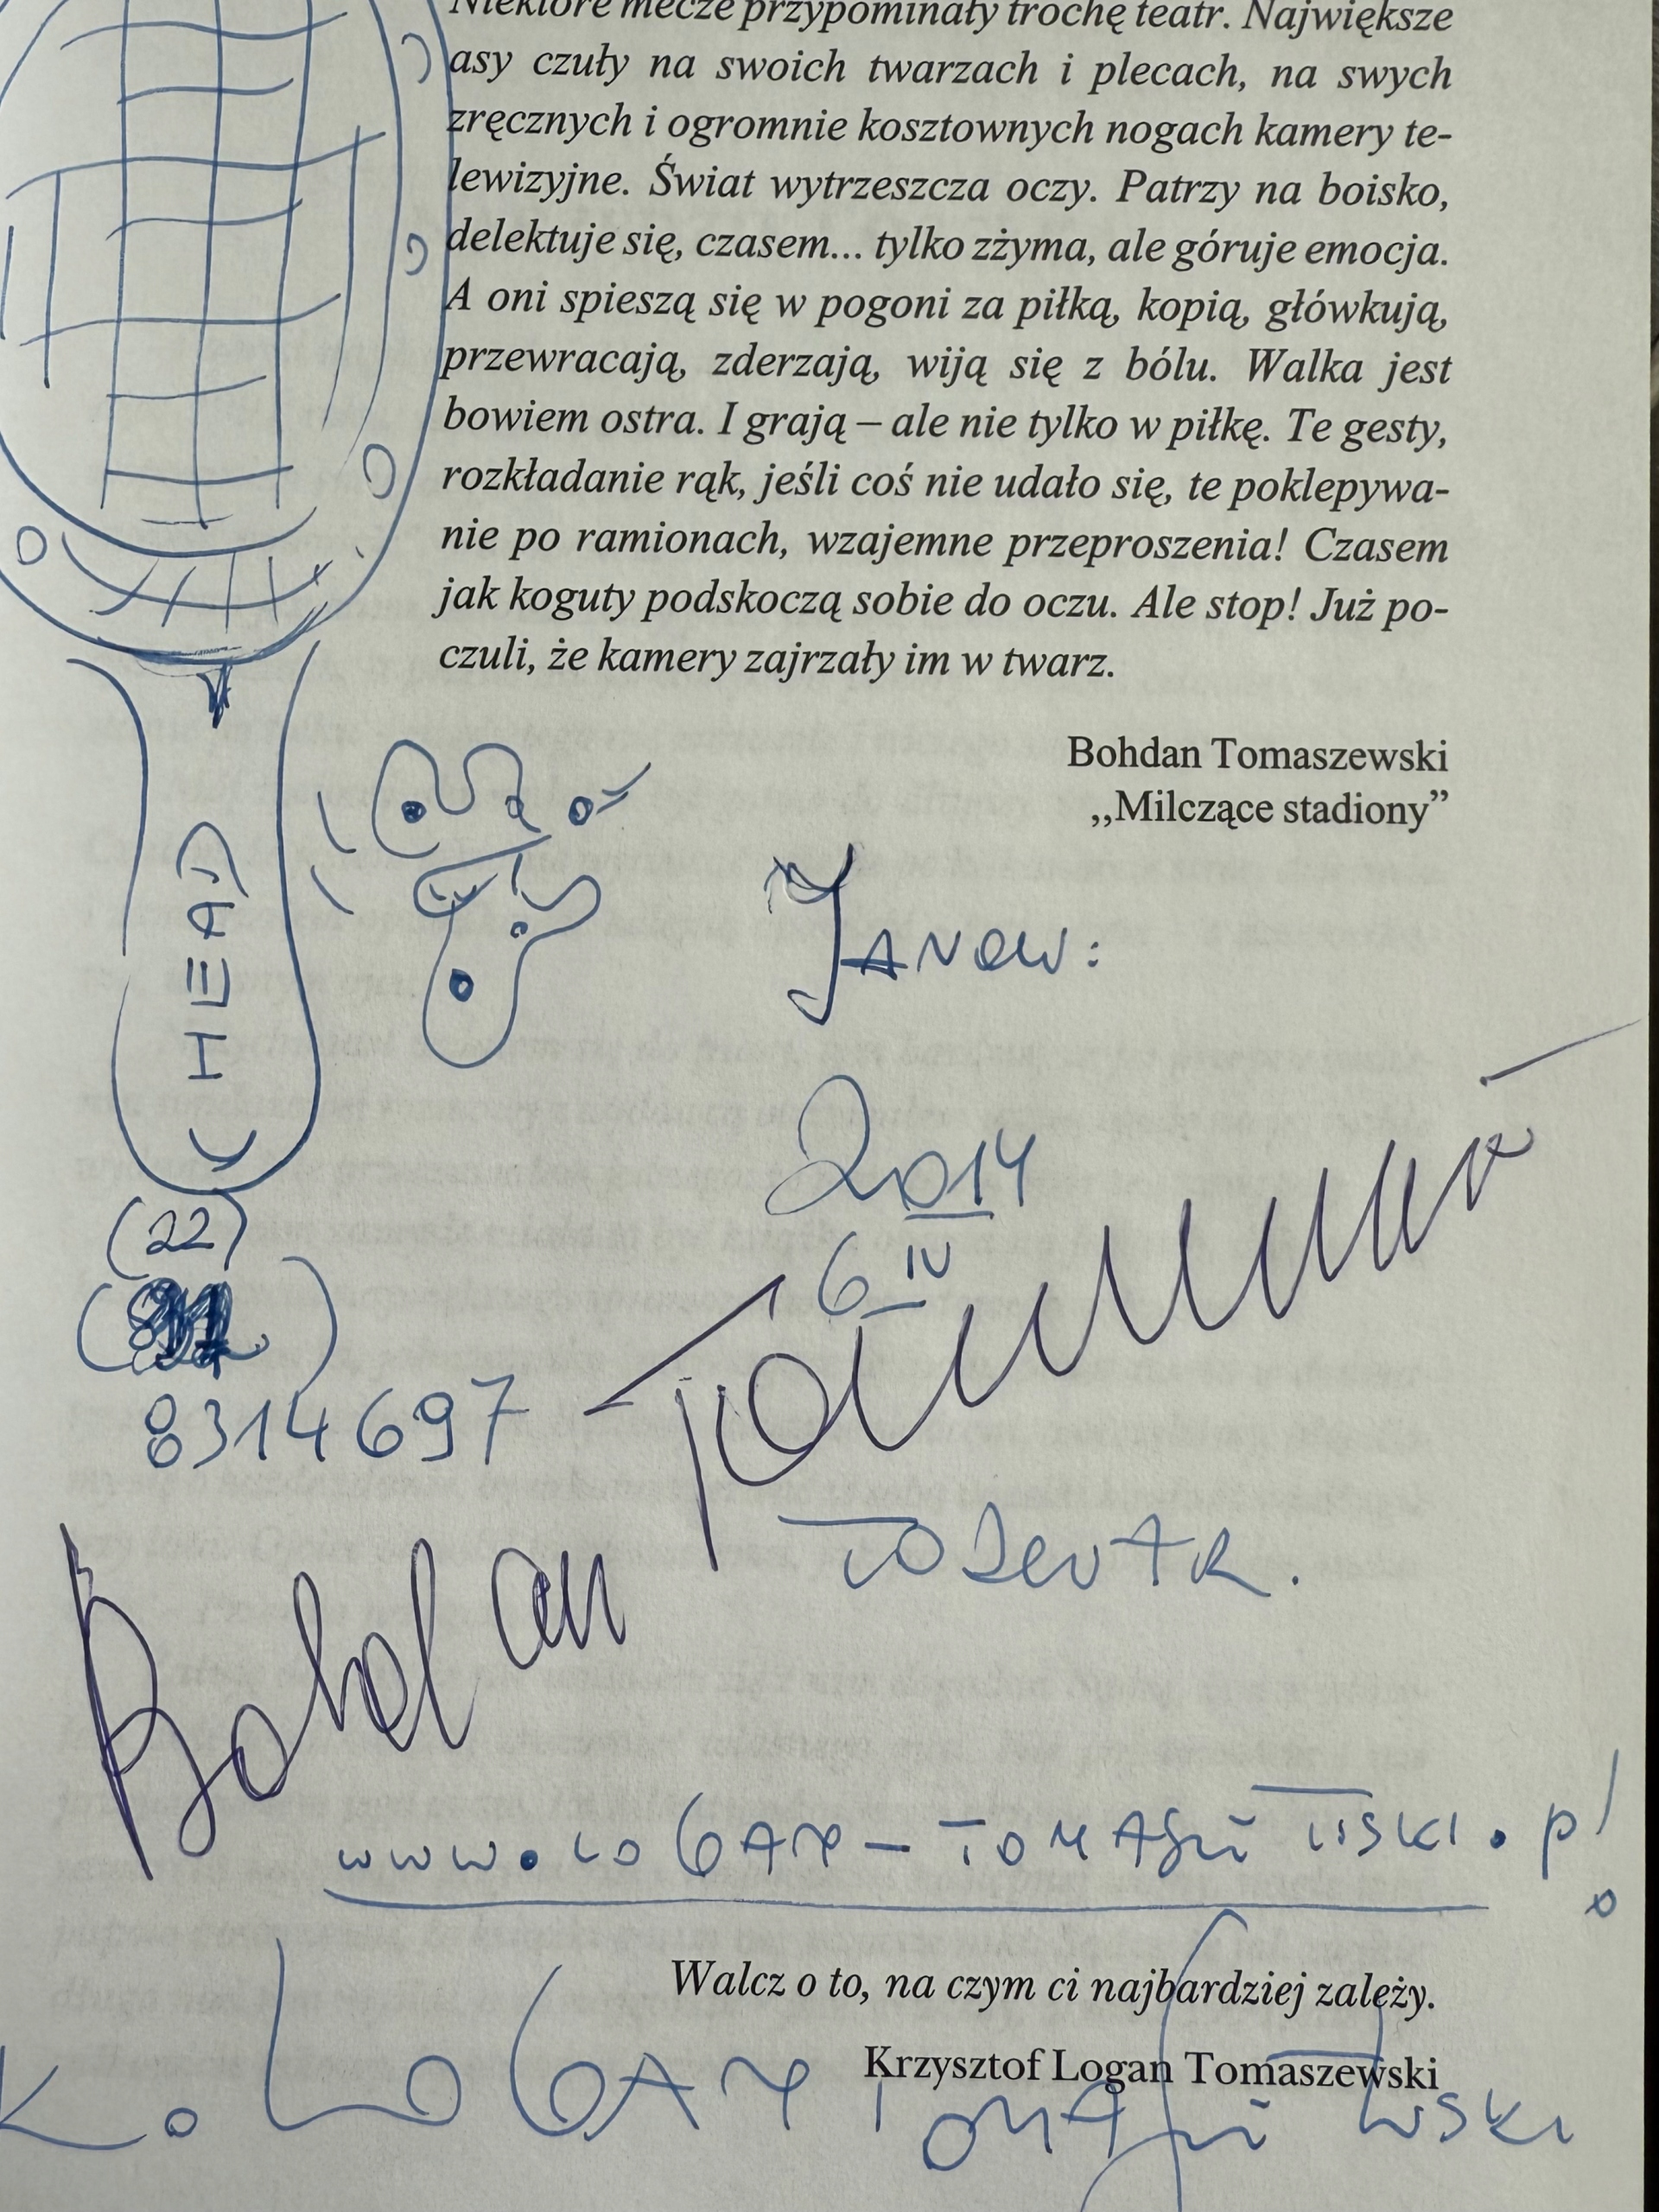 Niektóre mecze przypominały trochę teatr. Największe
asy czuły na swoich twarzach i plecach, na swych
zręcznych i ogromnie kosztownych nogach kamery te-
lewizyjne. Świat wytrzeszcza oczy. Patrzy na boisko,
delektuje się, czasem... tylko zżyma, ale góruje emocja.
A oni spieszą się w pogoni za piłką, kopią, główkują,
przewracają, zderzają, wiją się z bólu. Walka jest
bowiem ostra. I grają – ale nie tylko w piłkę. Te gesty,
rozkładanie rąk, jeśli coś nie udało się, te poklepywa-
nie po ramionach, wzajemne przeproszenia! Czasem
jak koguty podskoczą sobie do oczu. Ale stop! Już po-
czuli, że kamery zajrzały im w twarz.
Bohdan Tomaszewski
„Milczące stadiony”
HEAD
2014
6 IV
(22)
8314697
Bohdan
www.LOGAN-TOMASZEWSKI.pl
Walcz o to, na czym ci najbardziej zależy.
Krzysztof Logan Tomaszewski
K. LOGAN TOMASZEWSKI